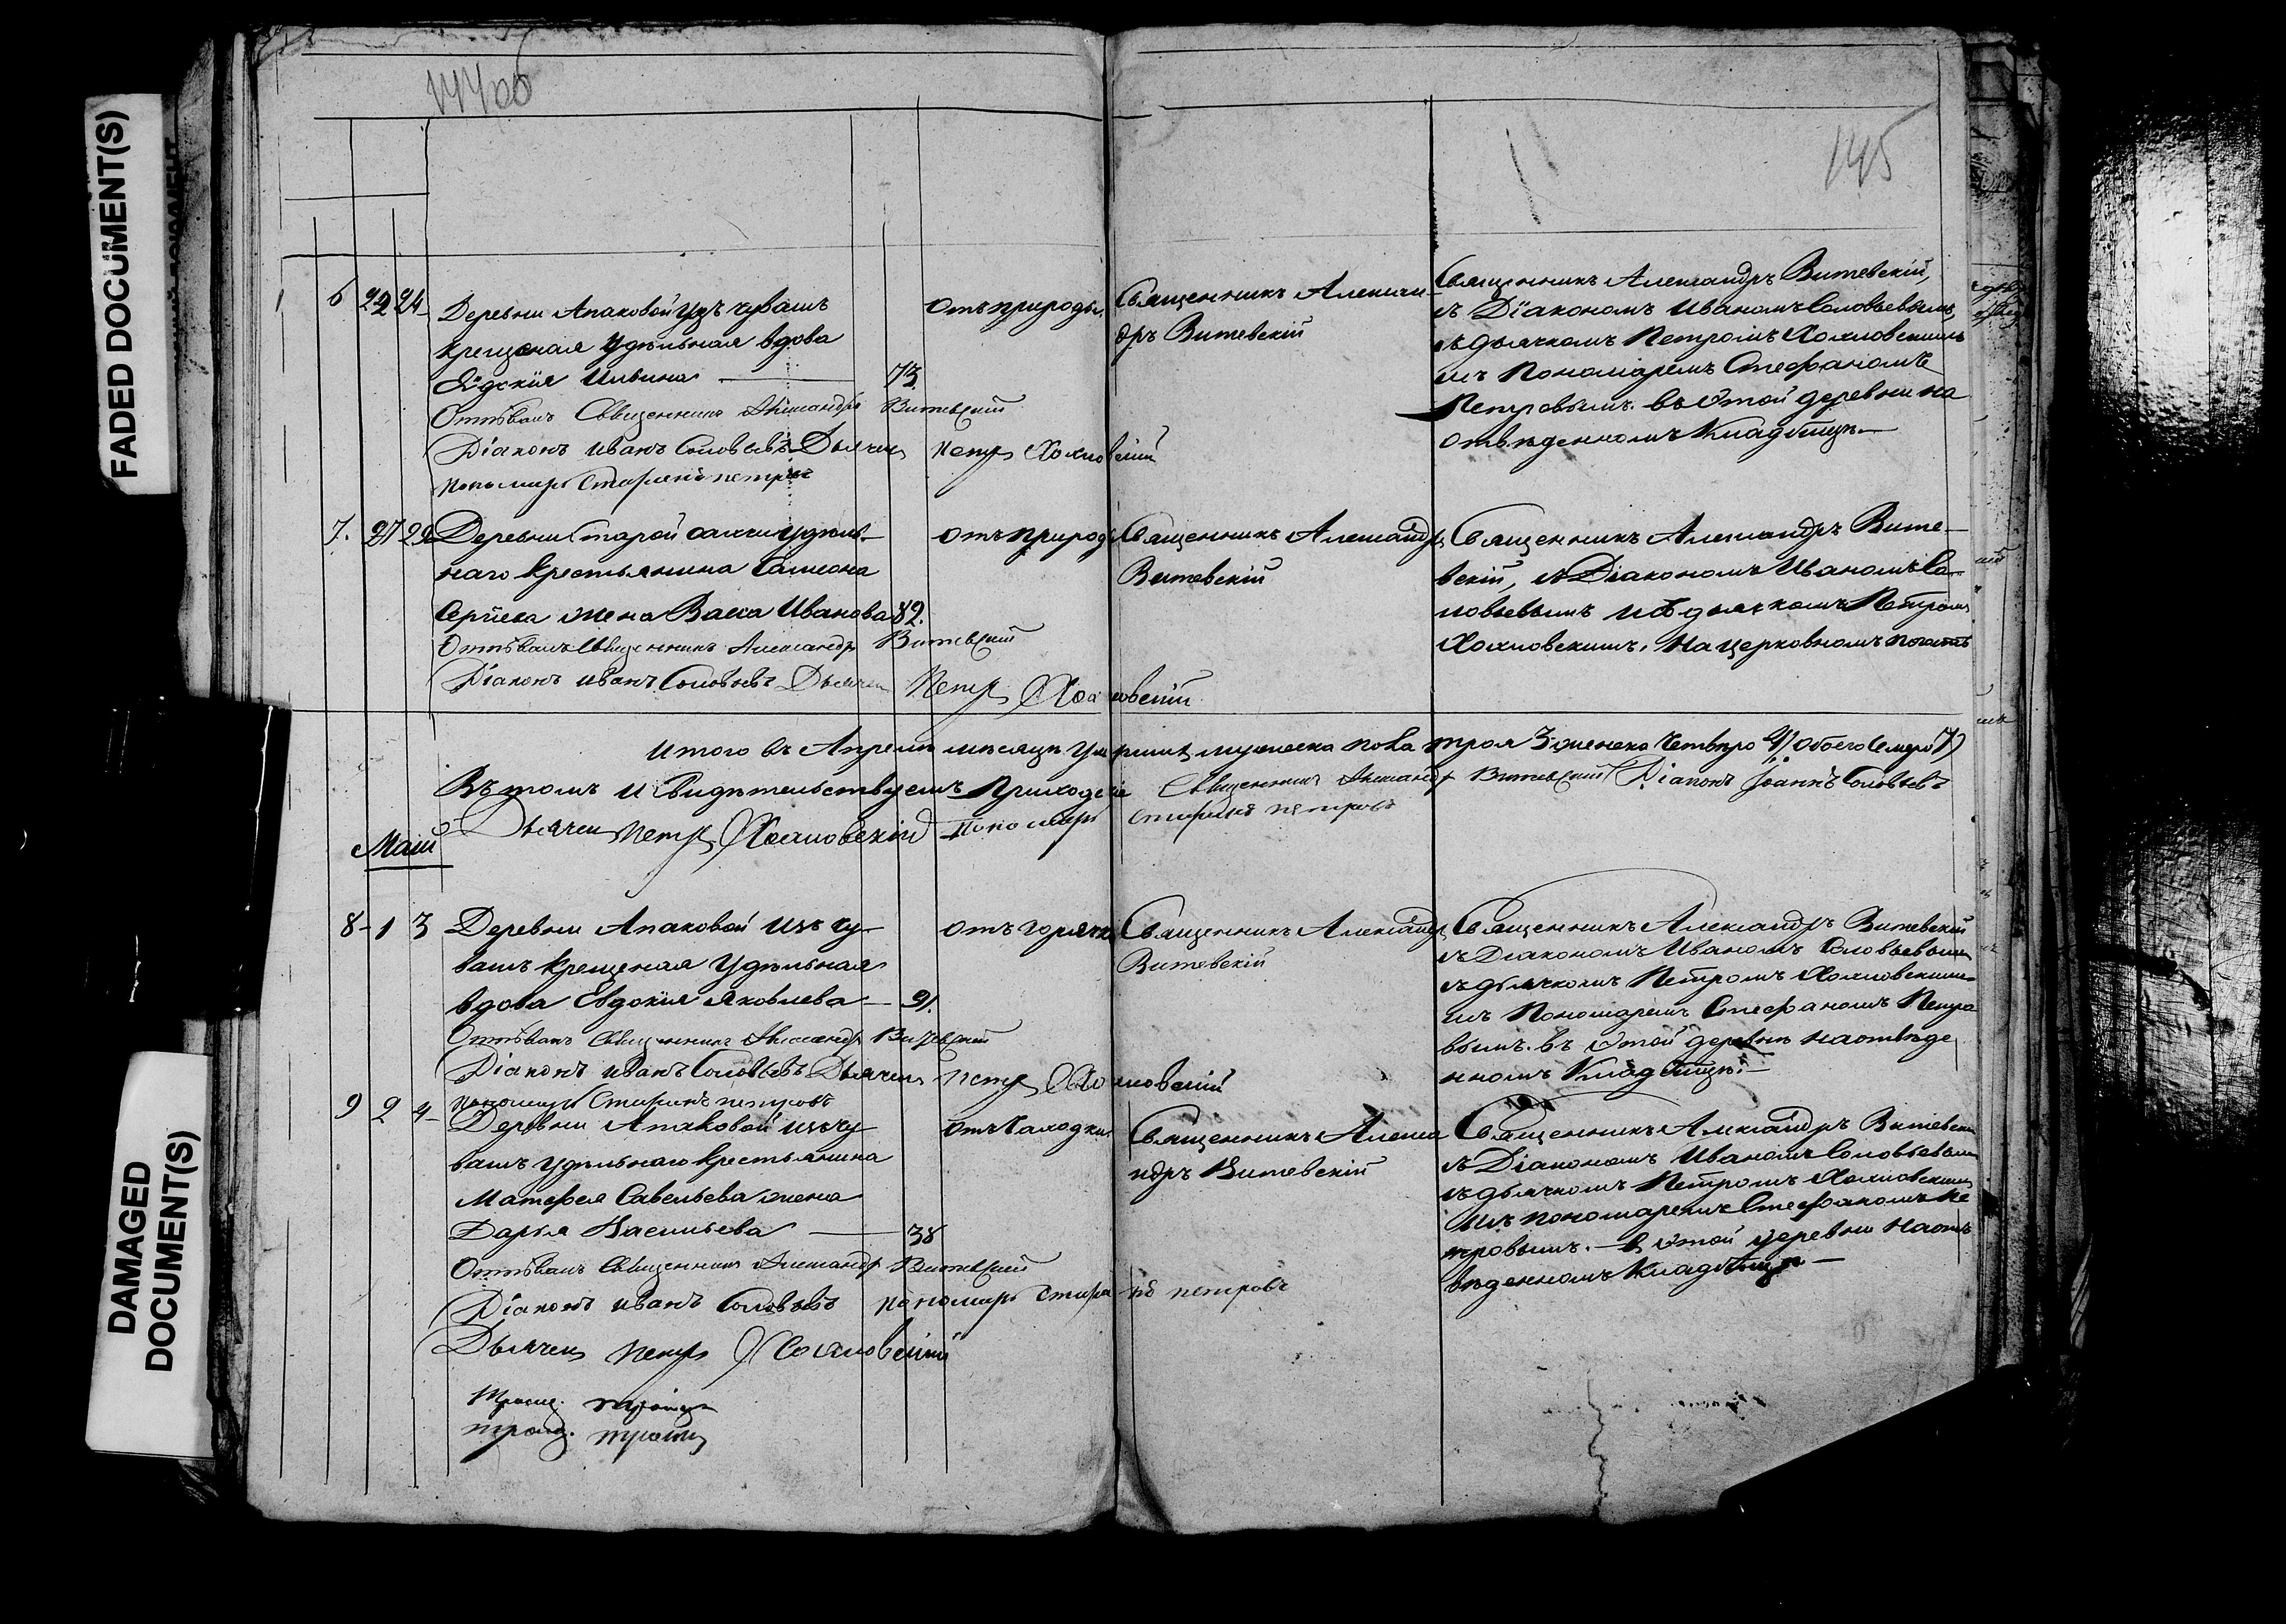 FADED DOCUMENT(S)
DAMAGED
DOCUMENT(S)
145
6 22 24 Деревни Апаковой изъ чувашъ
крещеная удѣльная вдова
Евдокія Ильина 73.
отъ природы.
Священникъ Алексан
дръ Витевскій
Священникъ Александръ Витевскій,
съ Діакономъ Иваномъ Соловьевымъ,
съ дьячкомъ Петромъ Хохловскимъ
и съ Пономаремъ Стефаномъ
Петровымъ. въ Этой деревни на
отвѣденномъ Кладбищѣ.
Отпѣвалъ Священникъ Александръ Витевскій
Діаконъ Иванъ Соловьевъ Дьячекъ Петръ Хохловскій
Пономарь Стефанъ Петровъ
7. 27 29 Деревни Старой удѣль-
наго крестьянина
жена Иванова 82.
отъ природы
Священникъ Александръ
Витевскій
Священникъ Александръ Вите-
вскій, съ Діакономъ Иваномъ Со-
ловьевымъ и съ дьячкомъ Петромъ
Хохловскимъ. На церковномъ погостѣ
Отпѣвалъ Священникъ Александръ Витевскій
Діаконъ Иванъ Соловьевъ Дьячекъ Петръ Хохловскій
Итого въ Апрелѣ мѣсяцѣ умершихъ мужеска пола трое 3 женска четверо 4/ обоего семеро 7)
Въ томъ и свидѣтельствуемъ Приходскіе Священникъ Александръ Витевскій Діаконъ Іоаннъ Соловьевъ
Дьячекъ Петръ Хохловскій Пономарь Стефанъ Петровъ
Маій
8 1 3 Деревни Апаковой изъ чу-
вашъ крещеная удѣльная
вдова Евдокія Яковлева 91.
отъ горячки
Священникъ Александръ
Витевскій
Священникъ Александръ Витевскій
съ Діакономъ Иваномъ Соловьевымъ
съ дьячкомъ Петромъ Хохловскимъ
и съ Пономаремъ Стефаномъ Петро
вымъ. въ Этой деревнѣ на отвѣде
нномъ Кладбищѣ.
Отпѣвалъ Священникъ Александръ Витевскій
Діаконъ Иванъ Соловьевъ Дьячекъ Петръ Хохловскій
Пономарь Стефанъ Петровъ
9 2 4 Деревни Апаковой изъ чу-
вашъ удѣльнаго крестьянина
Матфея Савельева жена
Дарья Васильева 38
Священникъ Алекса
ндръ Витевскій
Священникъ Александръ Витевскій
съ Діакономъ Иваномъ Соловьевымъ
съ дьячкомъ Петромъ Хохловскимъ
и съ пономаремъ Стефаномъ Пе
тровымъ. въ этой деревни на от
вѣденномъ кладбищѣ
Отпѣвалъ Священникъ Александръ Витевскій
Діаконъ Иванъ Соловьевъ Пономарь Стефанъ Петровъ
Дьячекъ Петръ Хохловскій